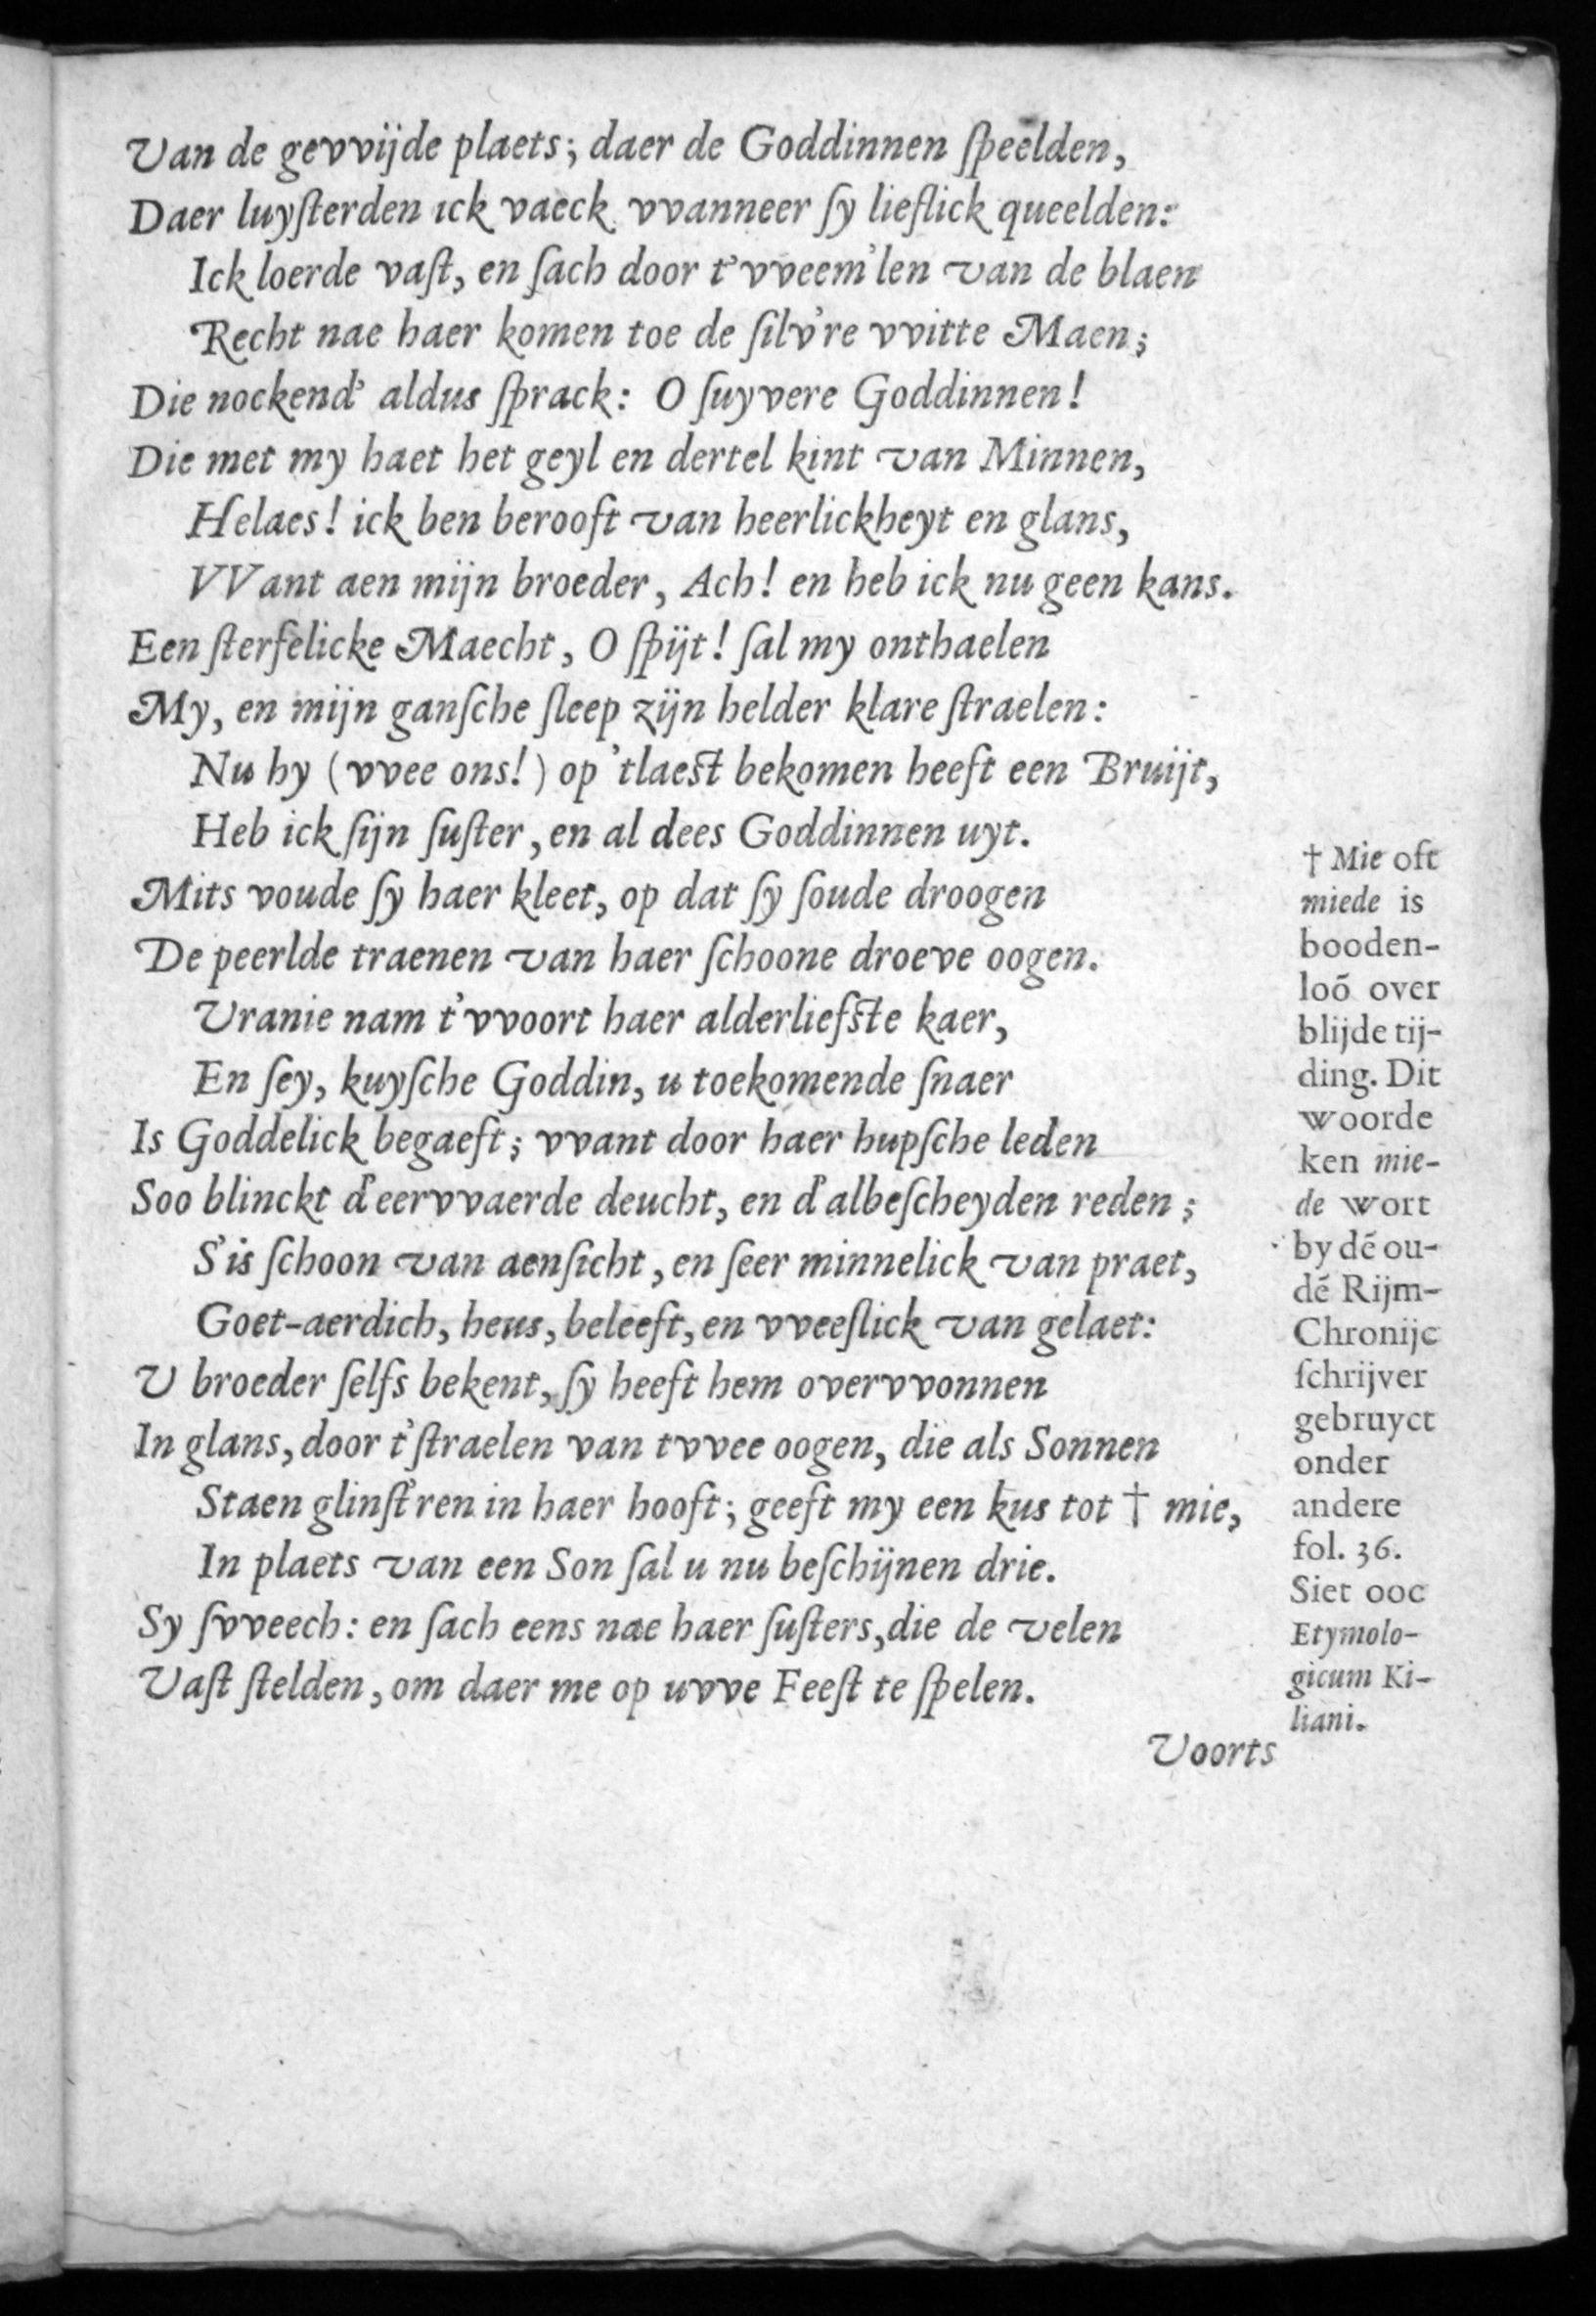 Van de gevvijde plaets; daer de Goddinnen ſpeelden,
Daer luyſterden ick vaeck vvanneer ſy lieflick queelden:
Ick loerde vaſt, en ſach door t'vveem'len van de blaen
Recht nae haer komen toe de ſilv're vvitte Maen;
Die nockend' aldus ſprack: O ſuyvere Goddinnen!
Die met my haet het geyl en dertel kint van Minnen,
Helaes! ick ben berooft van heerlickheyt en glans,
VVant aen mijn broeder, Ach! en heb ick nu geen kans.
Een ſterfelicke Maecht, O ſpijt! ſal my onthaelen
My, en mijn ganſche ſleep zijn helder klare ſtraelen:
Nu hy (vvee ons!) op 'tlaeſt bekomen heeft een Bruijt,
Heb ick ſijn ſuſter, en al dees Goddinnen uyt.
Mits voude ſy haer kleet, op dat ſy ſoude droogen
De peerlde traenen van haer ſchoone droeve oogen.
Vranie nam t'vvoort haer alderliefſte kaer,
En ſey, kuyſche Goddin, u toekomende ſnaer
Is Goddelick begaeft; vvant door haer hupſche leden
Soo blinckt d'eervvaerde deucht, en d'albeſcheyden reden;
S'is ſchoon van aenſicht, en ſeer minnelick van praet,
Goet-aerdich, heus, beleeft, en vveeſlick van gelaet:
V broeder ſelfs bekent, ſy heeft hem overvvonnen
In glans, door t'ſtraelen van tvvee oogen, die als Sonnen
Staen glinſt'ren in haer hooft; geeft my een kus tot † mie,
In plaets van een Son ſal u nu beſchijnen drie.
Sy ſvveech: en ſach eens nae haer ſuſters, die de velen
Vaſt ſtelden, om daer me op uvve Feeſt te ſpelen.
Voorts
† Mie oft
miede is
booden-
loõ over
blijde tij-
ding. Dit
woorde
ken mie-
de wort
by dẽ ou-
dẽ Rijm-
Chronijc
ſchrijver
gebruyct
onder
andere
fol. 36.
Siet ooc
Etymolo-
gicum Ki-
liani.